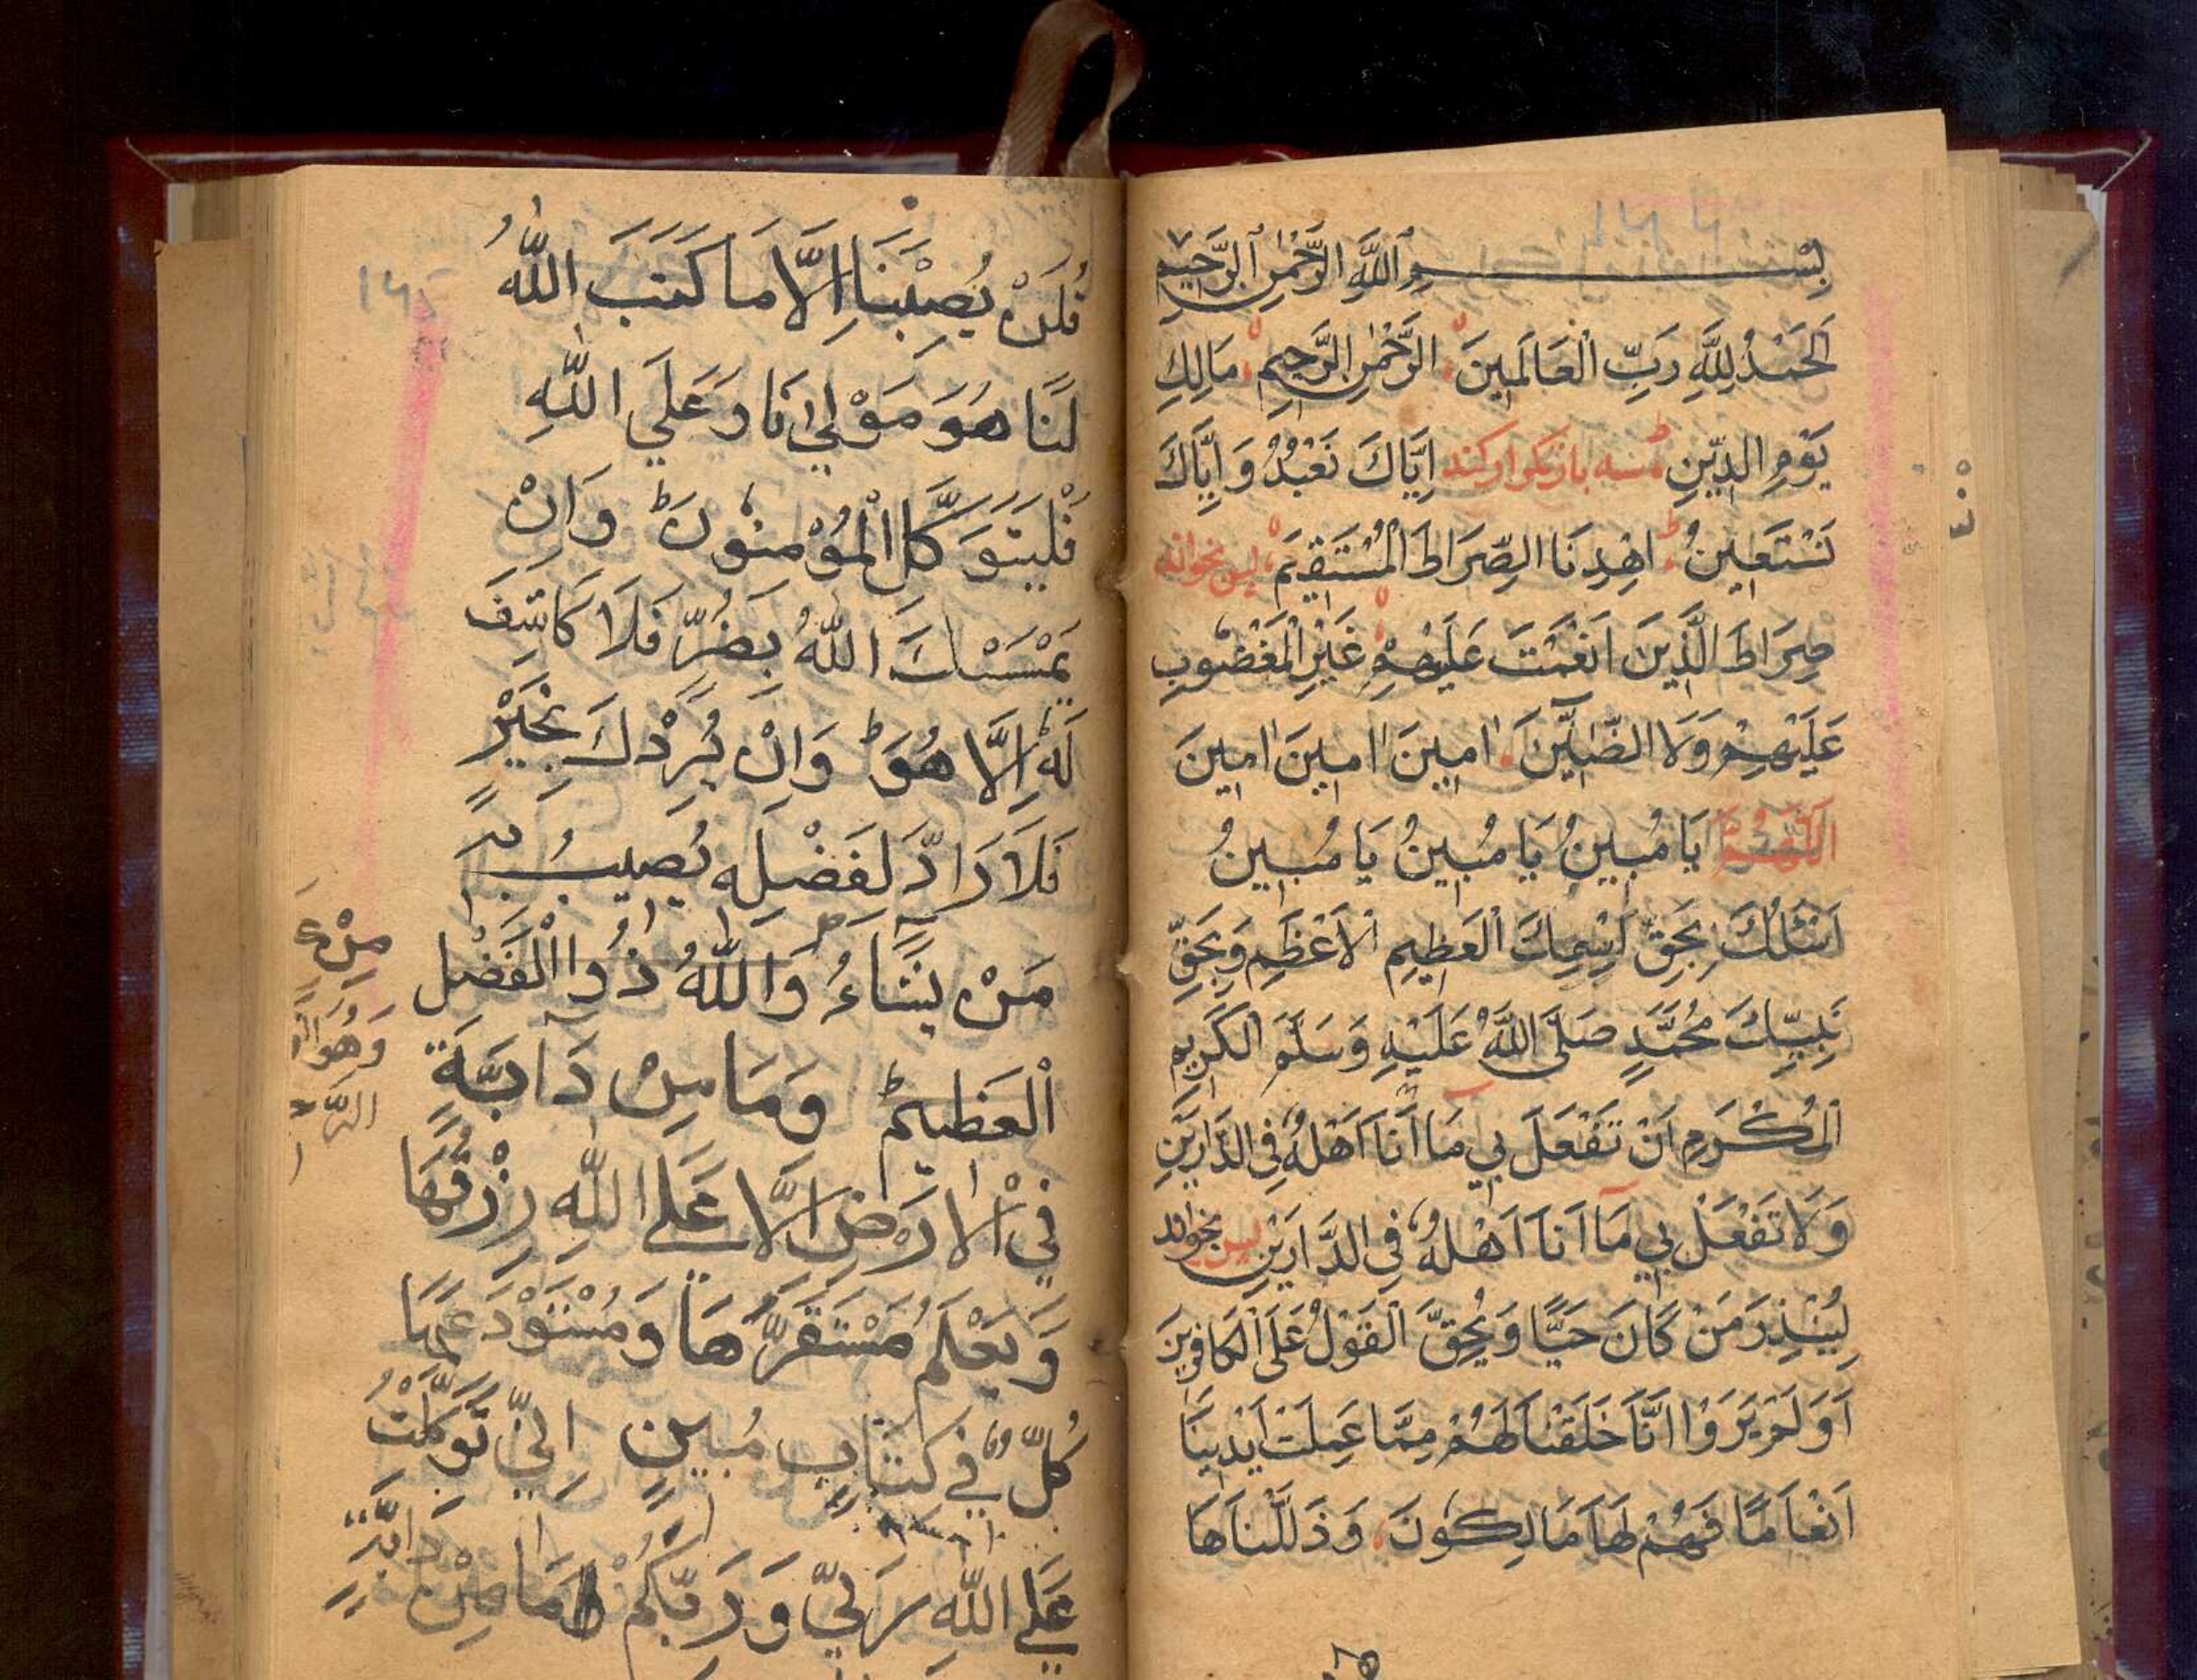 بِسْــــمِ اللَّهِ الرَّحْمٰنِ الرَّحِيمِ
اَلْحَمْدُ لِلَّهِ رَبِّ الْعَالَمِينَ الرَّحْمٰنِ الرَّحِيمِ مَالِكِ
يَوْمِ الدِّينِ سه بار تكرار كند اِيَّاكَ نَعْبُدُ وَ اِيَّاكَ
نَسْتَعِينُ اِهْدِنَا الصِّرَاطَ الْمُسْتَقِيمَ پس بخواند
صِرَاطَ الَّذِينَ اَنْعَمْتَ عَلَيْهِمْ غَيْرِ الْمَغْضُوبِ
عَلَيْهِمْ وَلَا الضَّالِّينَ اٰمِينَ اٰمِينَ اٰمِينَ
اَللّٰهُمَّ يَا مُبِينُ يَا مُبِينُ يَا مُبِينُ
اَسْئَلُكَ بِحَقِّ اِسْمِكَ الْعَظِيمِ الْاَعْظَمِ وَبِحَقِّ
نَبِيِّكَ مُحَمَّدٍ صَلَّى اللَّهُ عَلَيْهِ وَسَلَّمَ الْكَرِيمِ
الْمُكْرَمِ اَنْ تَفْعَلَ بِي مَا اَنَا اَهْلُهُ فِي الدَّارَيْنِ
وَلَا تَفْعَلْ بِي مَا اَنَا اَهْلُهُ فِي الدَّارَيْنِ پس بخواند
لِيُنْذِرَ مَنْ كَانَ حَيًّا وَيَحِقَّ الْقَوْلُ عَلَى الْكَافِرِينَ
اَوَلَمْ يَرَوْا اَنَّا خَلَقْنَا لَهُمْ مِمَّا عَمِلَتْ اَيْدِينَا
اَنْعَامًا فَهُمْ لَهَا مَالِكُونَ وَذَلَّلْنَاهَا
قُلْ لَنْ يُصِيْبَنَا اِلَّا مَا كَتَبَ اللّٰهُ
لَنَا هُوَ مَوْلٰنَا وَعَلَي اللّٰهِ
فَلْيَتَوَكَّلِ الْمُؤْمِنُوْنَ ط وَاِنْ
يَمْسَسْكَ اللّٰهُ بِضُرٍّ فَلَا كَاشِفَ
لَهُ اِلَّا هُوَ ط وَاِنْ يُرِدْكَ بِخَيْرٍ
فَلَا رَادَّ لِفَضْلِهِ يُصِيبُ بِهِ
مَنْ يَشَاءُ وَاللّٰهُ ذُوا الْفَضْلِ
الْعَظِيمُ ط وَمَا مِنْ دَابَّةٍ
فِي الْاَرْضِ اِلَّا عَلَي اللّٰهِ رِزْقُهَا
وَيَعْلَمُ مُسْتَقَرَّهَا وَمُسْتَوْدَعَهَا
كُلٌّ فِي كِتَابٍ مُبِينٍ اِنِّي تَوَكَّلْتُ
عَلَي اللّٰهِ رَبِّي وَرَبِّكُمْ ط مَا مِنْ دَابَّةٍ